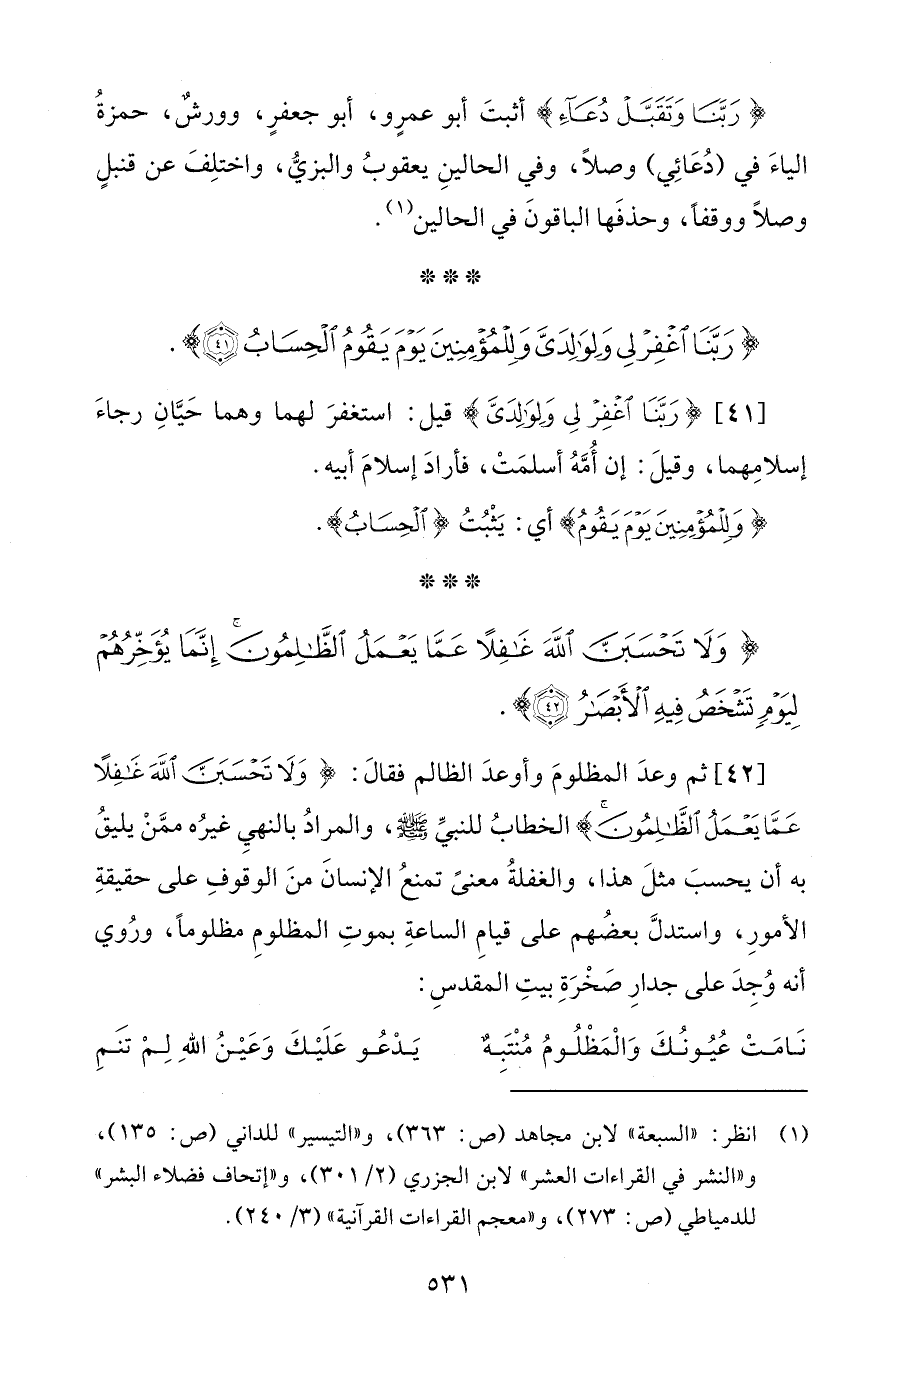 ﴿ رَبَّنَا وَتَقَبَّلْ دُعَآءِ ﴾ أثبتَ أبو عمرٍو، أبو جعفرٍ، وورشٌ، حمزةُ
الياءَ في (دُعَائِي) وصلاً، وفي الحالينِ يعقوبُ والبزيُّ، واختلِفَ عن قنبلٍ
وصلاً ووقفاً، وحذفَها الباقونَ في الحالين(١).
* * *
﴿ رَبَّنَا ٱغْفِرْ لِى وَلِوَٰلِدَىَّ وَلِلْمُؤْمِنِينَ يَوْمَ يَقُومُ ٱلْحِسَابُ ۝٤١﴾ .
[٤١] ﴿ رَبَّنَا ٱغْفِرْ لِى وَلِوَٰلِدَىَّ ﴾ قيل: استغفرَ لهما وهما حَيَّانِ رجاءَ
إسلامِهما، وقيلَ: إن أُمَّهُ أسلمَتْ، فأرادَ إسلامَ أبيه.
﴿ وَلِلْمُؤْمِنِينَ يَوْمَ يَقُومُ﴾ أي: يَثْبُتُ ﴿ ٱلْحِسَابُ﴾.
* * *
﴿ وَلَا تَحْسَبَنَّ ٱللَّهَ غَٰفِلًا عَمَّا يَعْمَلُ ٱلظَّٰلِمُونَ ۚ إِنَّمَا يُؤَخِّرُهُمْ
لِيَوْمٍ تَشْخَصُ فِيهِ ٱلْأَبْصَٰرُ ۝٤٢﴾ .
[٤٢] ثم وعدَ المظلومَ وأوعدَ الظالم فقالَ: ﴿ وَلَا تَحْسَبَنَّ ٱللَّهَ غَٰفِلًا
عَمَّا يَعْمَلُ ٱلظَّٰلِمُونَ ۚ﴾ الخطابُ للنبيِّ ﷺ، والمرادُ بالنهيِ غيرُه ممَّنْ يليقُ
به أن يحسبَ مثلَ هذا، والغفلةُ معنىً تمنعُ الإنسانَ منَ الوقوفِ على حقيقةِ
الأمورِ، واستدلَّ بعضُهم على قيامِ الساعةِ بموتِ المظلومِ مظلوماً، ورُوي
أنه وُجِدَ على جدارِ صَخْرَةِ بيتِ المقدسِ:
نَامَتْ عُيُونُكَ وَالْمَظْلُومُ مُنْتَبِهٌ يَدْعُو عَلَيْكَ وَعَيْنُ اللهِ لِمْ تَنَمِ
(١) انظر: «السبعة» لابن مجاهد (ص: ٣٦٣)، و«التيسير» للداني (ص: ١٣٥)،
و«النشر في القراءات العشر» لابن الجزري (٢/ ٣٠١)، و«إتحاف فضلاء البشر»
للدمياطي (ص: ٢٧٣)، و«معجم القراءات القرآنية» (٣/ ٢٤٠).
٥٣١